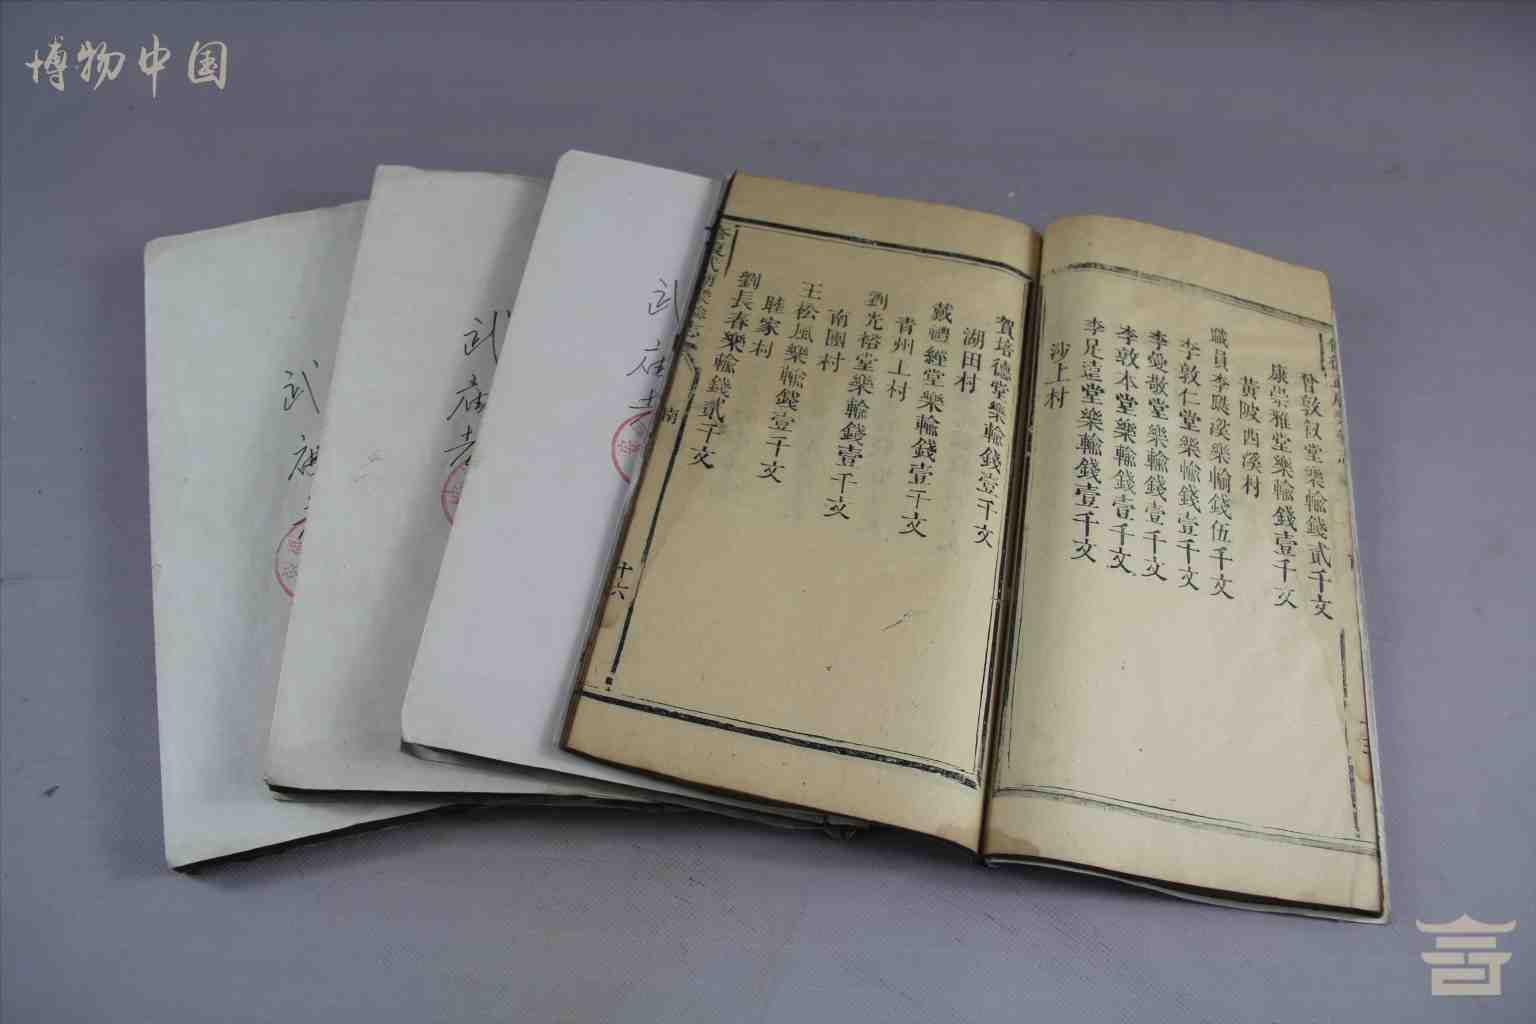 博物中国
武
庙
志
武
庙
志
武
庙
曾敦敘堂樂輸錢貳千文
康崇雅堂樂輸錢壹千文
黃陂西溪村
職員李
樂輸錢伍千文
李敦仁堂樂輸錢壹千文
李
敬堂樂輸錢壹千文
李敦本堂樂輸錢壹千文
李足
堂樂輸錢壹千文
沙上村
賀培德堂樂輸錢壹千文
湖田村
戴禮經堂樂輸錢壹千文
青州上村
劉光裕堂樂輸錢壹千文
南團村
王松風樂輸錢壹千文
眭家村
劉長春樂輸錢貳千文
南
十六